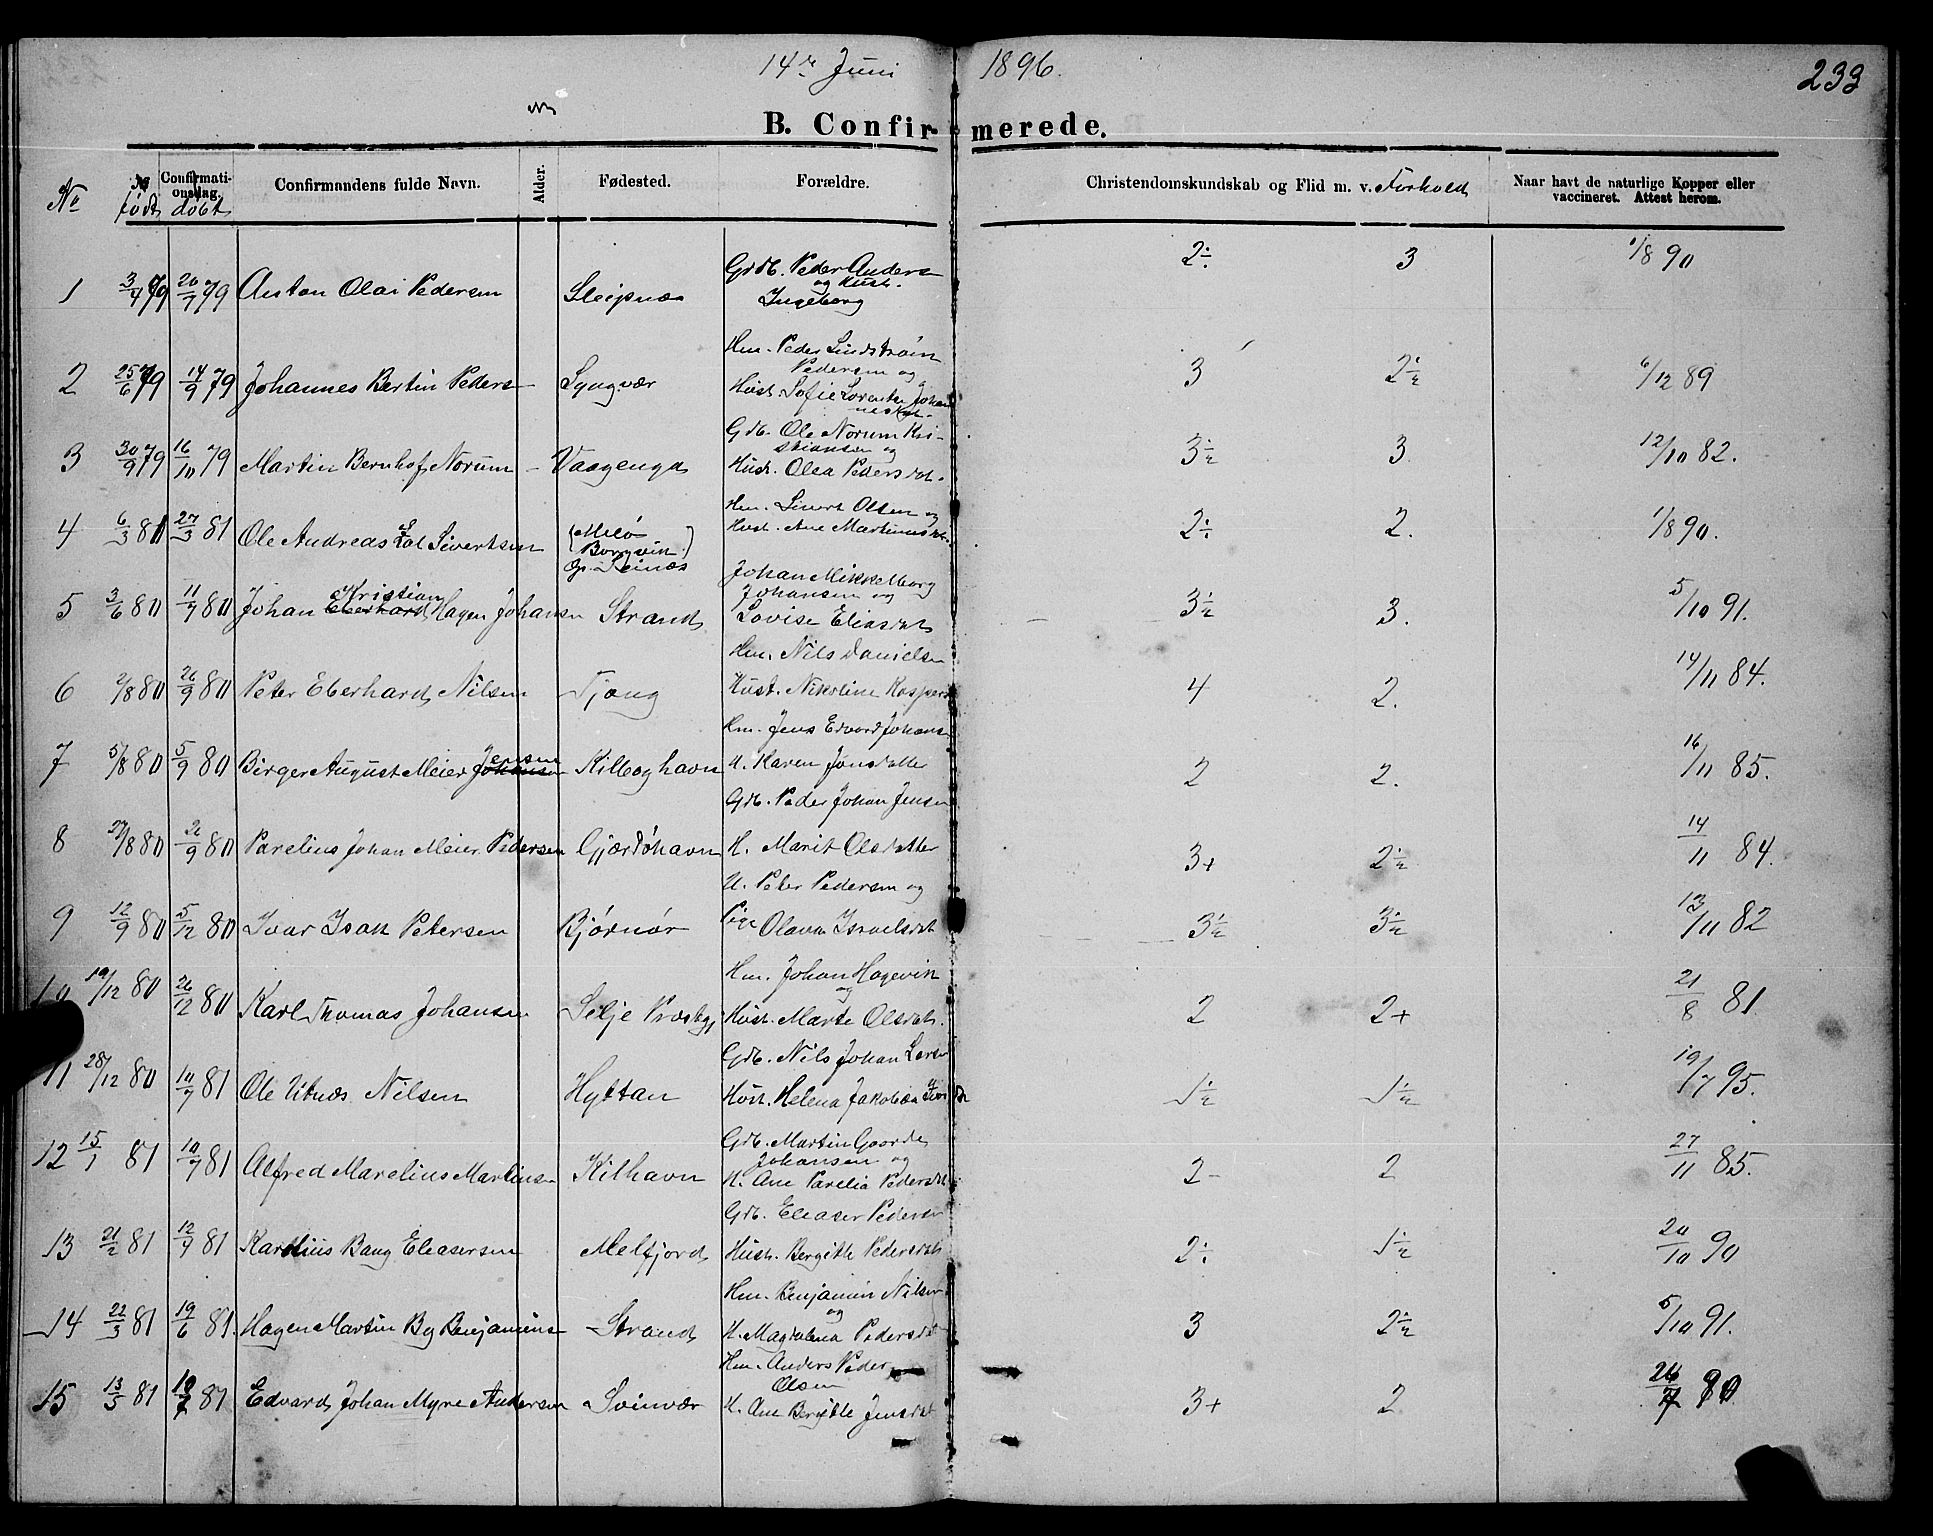 14de Juni 1896.
233
B. Confirmerede.
No
født
Confirmationsdag.
døbt
Confirmandens fulde Navn.
Alder.
Fødested.
Forældre.
Christendomskundskab og Flid m. v. Forhold
Naar havt de naturlige Kopper eller
vaccineret. Attest herom.
Grdb. Peder Anders
og Hust.
1 3/4 79 20/7 79 Anton Olai Pedersen Sleipnæs Ingeborg 2÷ 3 1/8 90
Hm. Peder Lindstrøm
Pedersen og
2 25/6 79 14/9 79 Johannes Bertin Peders Lyngvær Hust. Sofie Lorentze Johan 3 2½ 6/12 89
Grdb. Ole Norum Kri-
stiansen og
3 30/9 79 16/10 79 Martin Bernhof Norum Vaagengd Hust. Olea Pedersdat. 3½ 3 12/10 82.
Hm. Sivert Olsen og
4 6/3 81 27/3 81 Ole Andreas Sivertsen (Melø Hust. Ane Martinusdat. 2÷ 2. 1/8 90.
Borgvik)
Johan Mikkelborg
Kristian
Johansen og
5 3/6 80 11/7 80 Johan Eberhard Hagen Johansen Strand Lovise Eliasdat 3½ 3. 5/10 91.
Hm. Nils Danielsen
6 2/8 80 26/9 80 Peter Eberhard Nilsen Tjong Hust. Nikoline Kaspers 4 2. 14/11 84.
Hm. Jens Edvard Johans
Jensen
7 5/8 80 5/9 80 Birger August Meier Johansen Kilboghavn H. Karen Jonsdatter 2 2. 16/11 85.
Grdb. Peder Johan Jensen
8 27/8 80 26/9 80 Parelius Johan Meier Pedersen Gjærdøhavn H. Marit Olsdatter 3+ 2½ 14/11 84.
U. Peter Pedersen og
9 12/9 80 5/12 80 Ivar Isak Petersen Bjørnør Pige Olava Israelsdat 3½ 3½ 13/11 82
Hm. Johan Hagevik
og
10 19/12 80 26/12 80 Karl Thomas Johansen Selje Præstgj Hust. Marte Olsdat. 2 2+ 21/8 81
Grdb. Nils Johan Lars
11 28/12 80 10/7 81 Ole Utnæs Nilsen Hyttan Hust. Helena Jakobæa 1½ 1½ 19/7 95.
Grdb. Martin Gaarde
Johansen og
12 15/1 81 10/7 81 Alfred Marelius Martinsen Kilhavn H. Ane Parelia Pedersdat 2- 2 27/11 85.
Grdb. Eleaser Pedersen
13 21/2 81 12/7 81 Karolius Bang Eleasersen Melfjord Hust. Bergitte Pedersdat 2÷ 1½ 20/10 90
Hm. Benjamin Nilsen
og
14 22/3 81 19/6 81. Hagen Martin By Benjamins Strand H. Magdalena Pedersdat 3 2½ 5/10 91.
Hm. Anders Peder
Olsen
15 13/5 81 10/7 81 Edvard Johan Myre Andersen Svinvær H. Ane Bergitte Jensdat 3+ 2 26/7 90